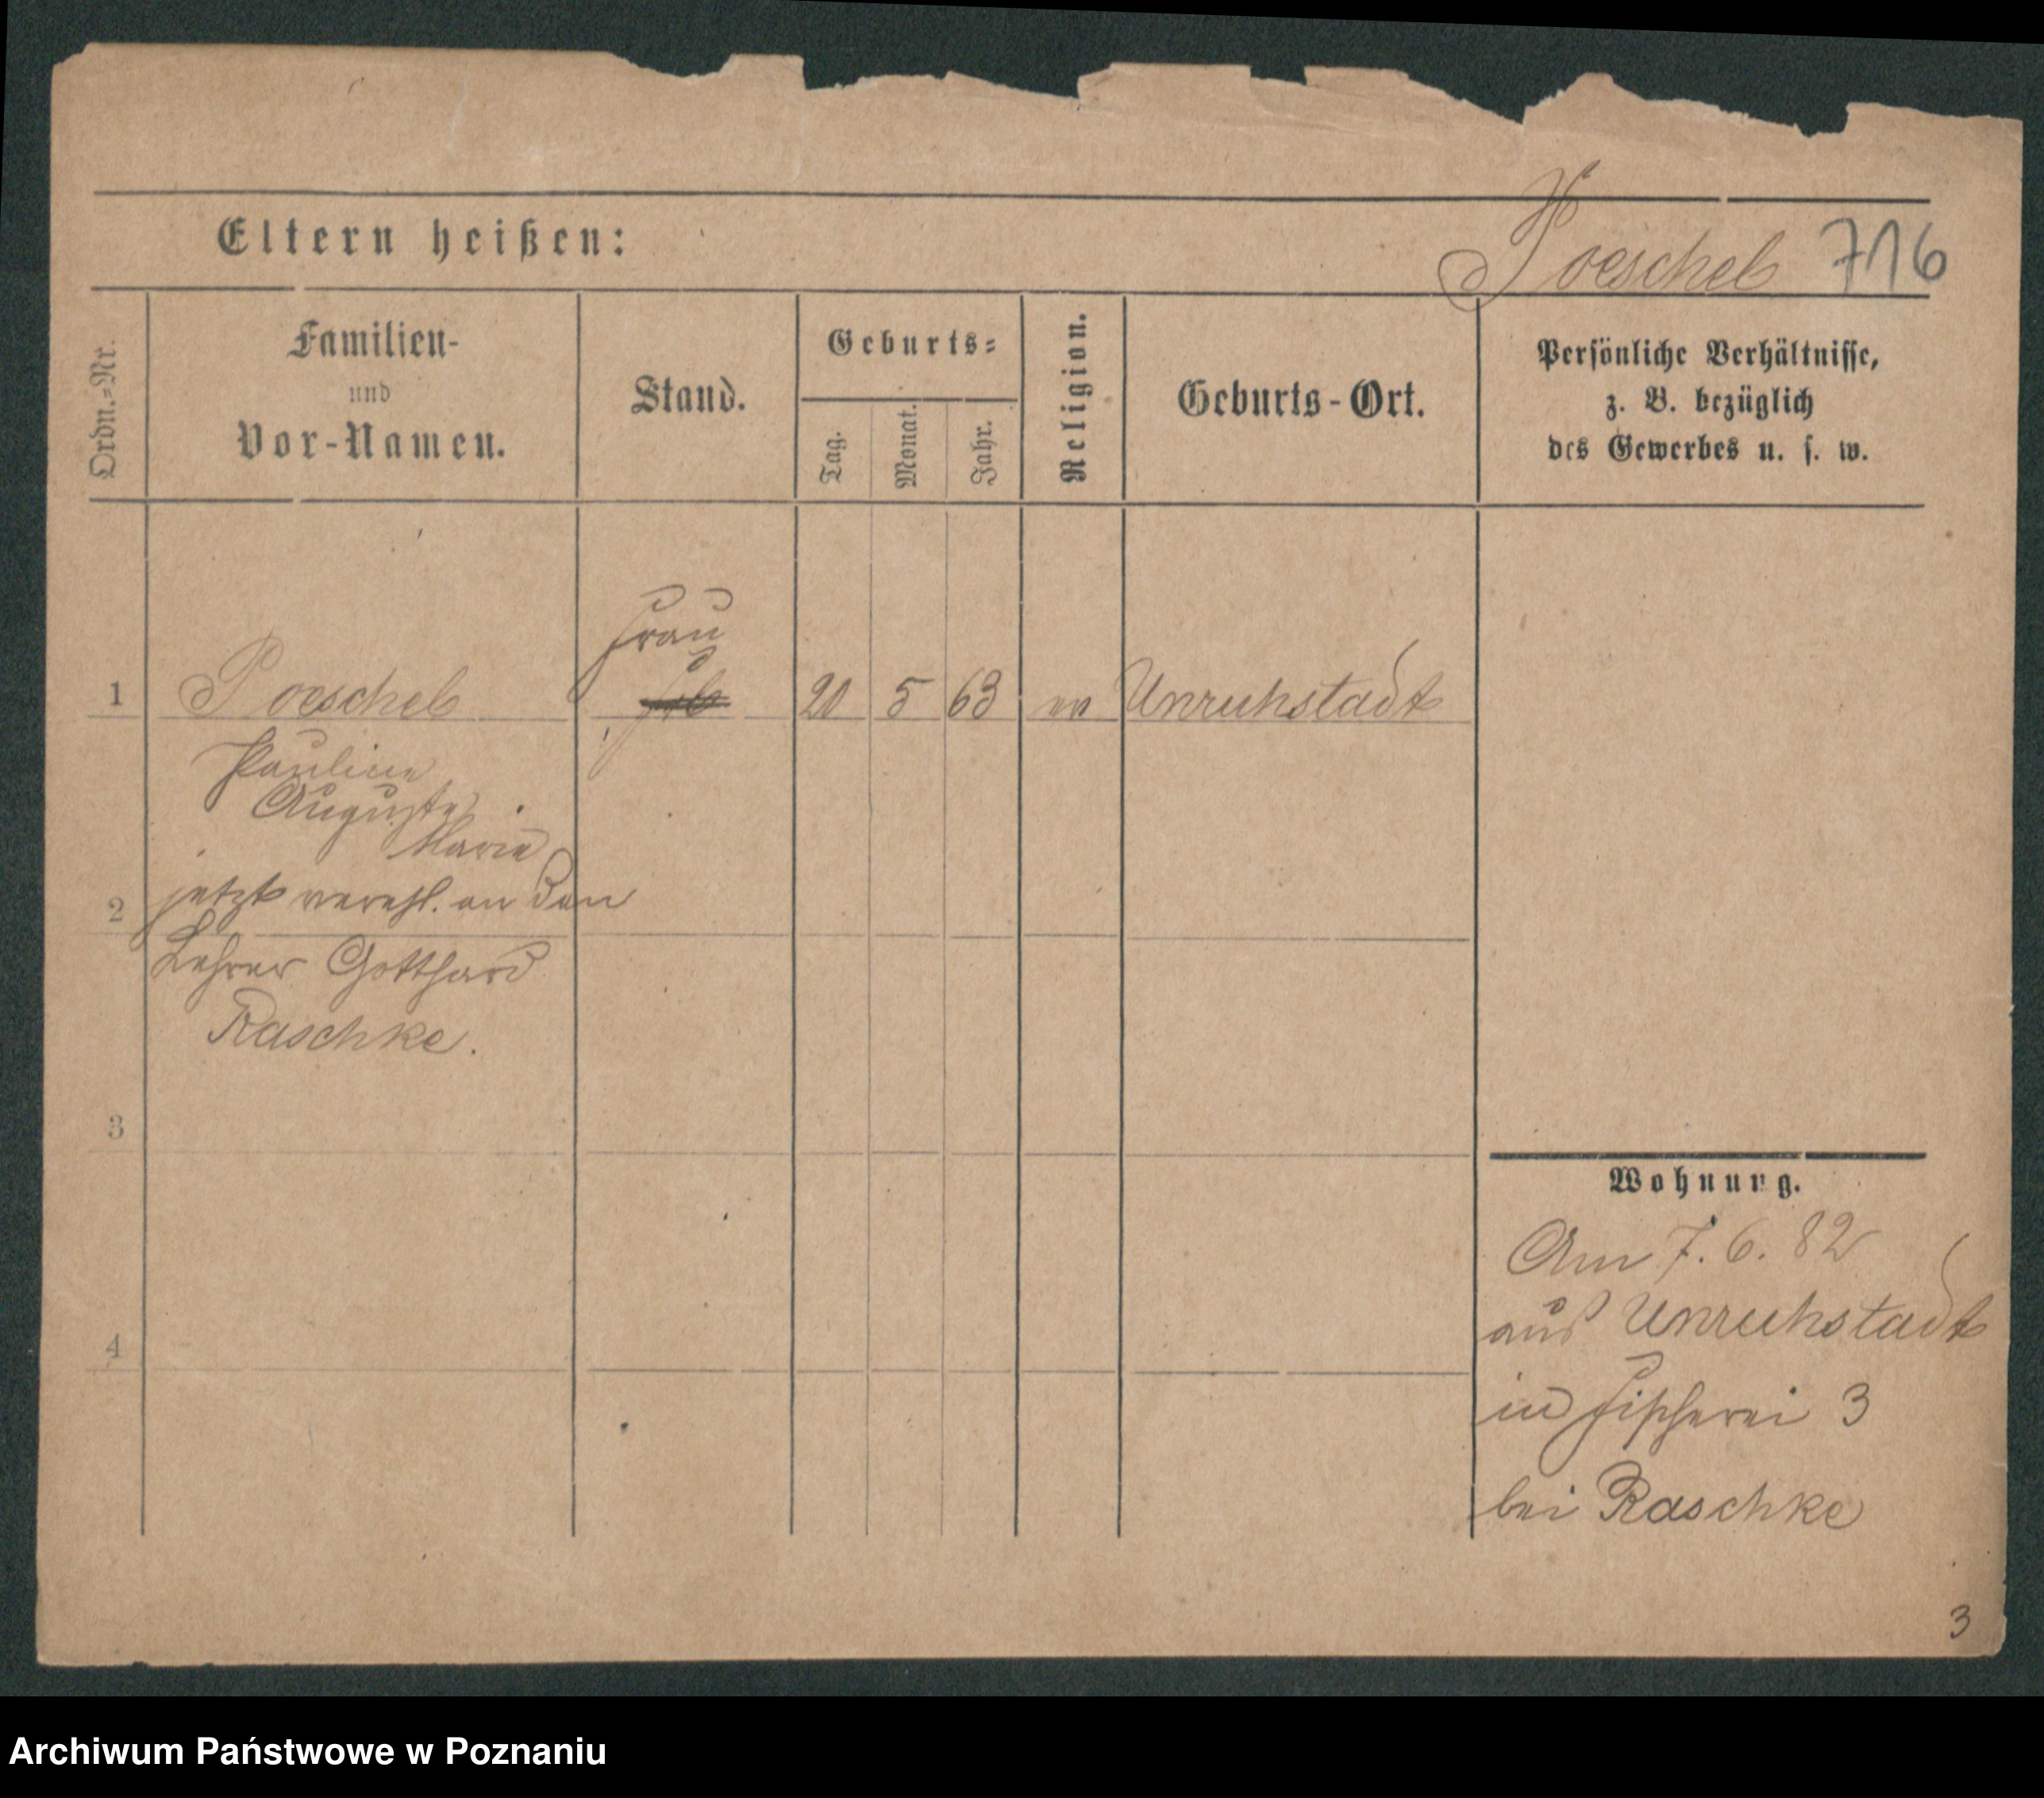 Eltern heißen:
Poeschel 716
Ordn.=Nr.
Familien-
und
Vor-Namen.
Stand.
Geburts=
Tag.
Monat.
Jahr.
Religion.
Geburts-Ort.
Persönliche Verhältnisse,
z. B. bezüglich
des Gewerbes u. s. w.
Frau
1 Poeschel 20 5 63 ev Unruhstadt
Pauline
Auguste
Marie
2 jetzt verehl. an den
Lehrer Gotthard
Raschke.
3
4
Wohnung.
Am 7. 6. 82
aus Unruhstadt
in Fischerei 3
bei Raschke
3
Archiwum Państwowe w Poznaniu